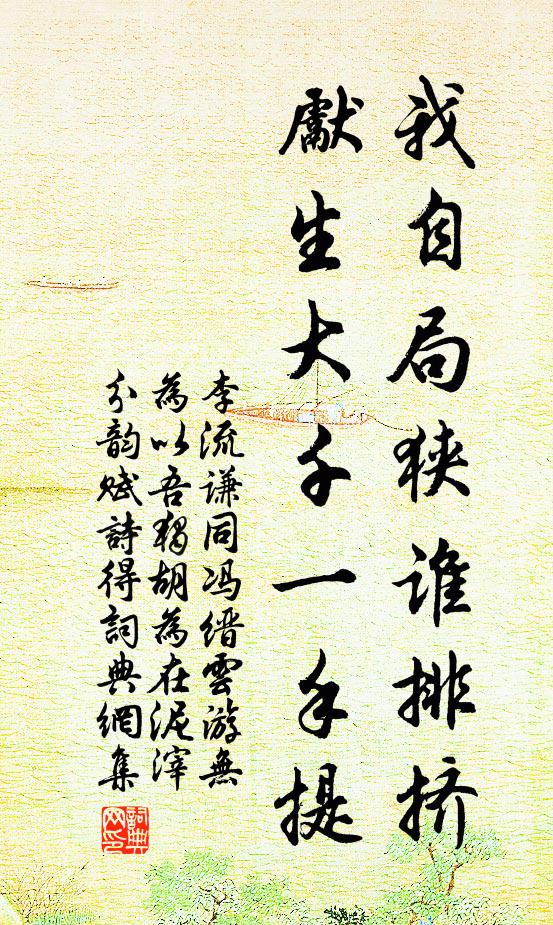 我自局狭谁排挤
獻生大千一手提
李流谦同冯缙雲游無
為以吾獨胡為在泥滓
分韵赋詩得詞典網集
詞典
网印